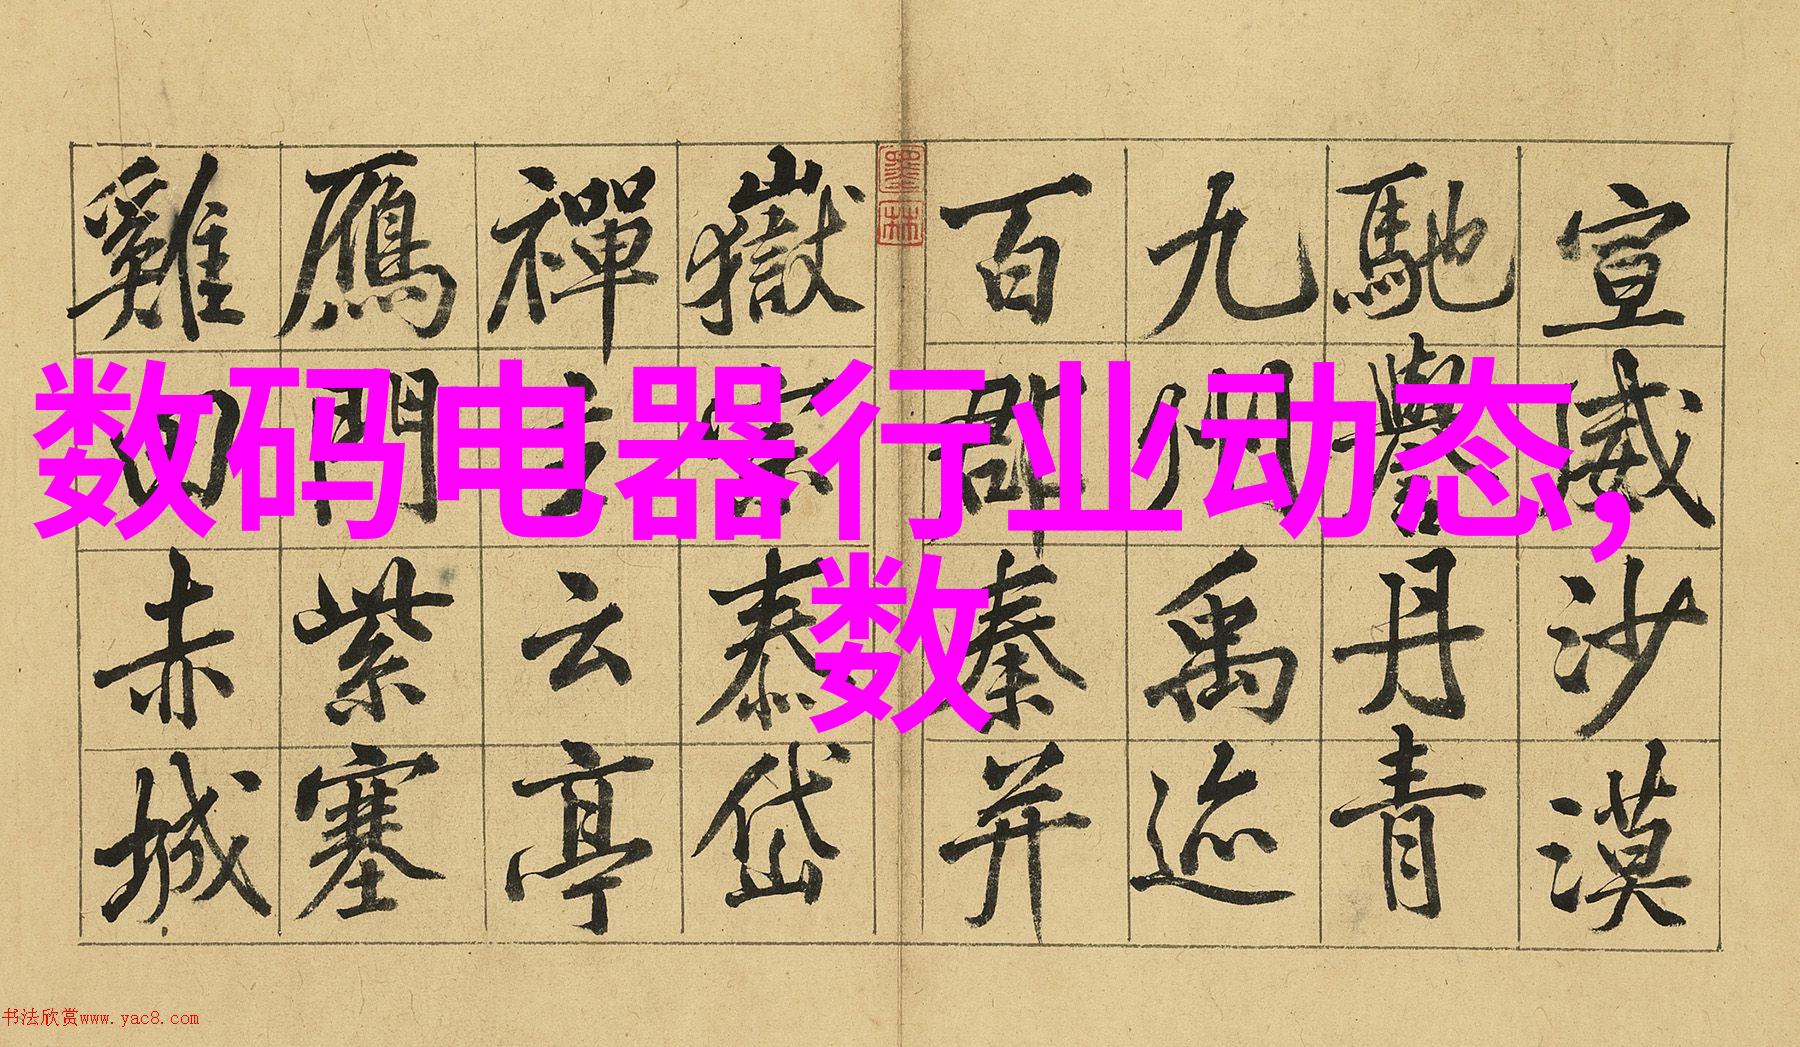 数码电器行业动态,
数
宣威沙漠
馳譽丹青
九州禹迹
百郡秦并
墨林
嶽宗泰岱
禪主云亭
鴈門紫塞
雞田赤城
书法欣赏www.yac8.com